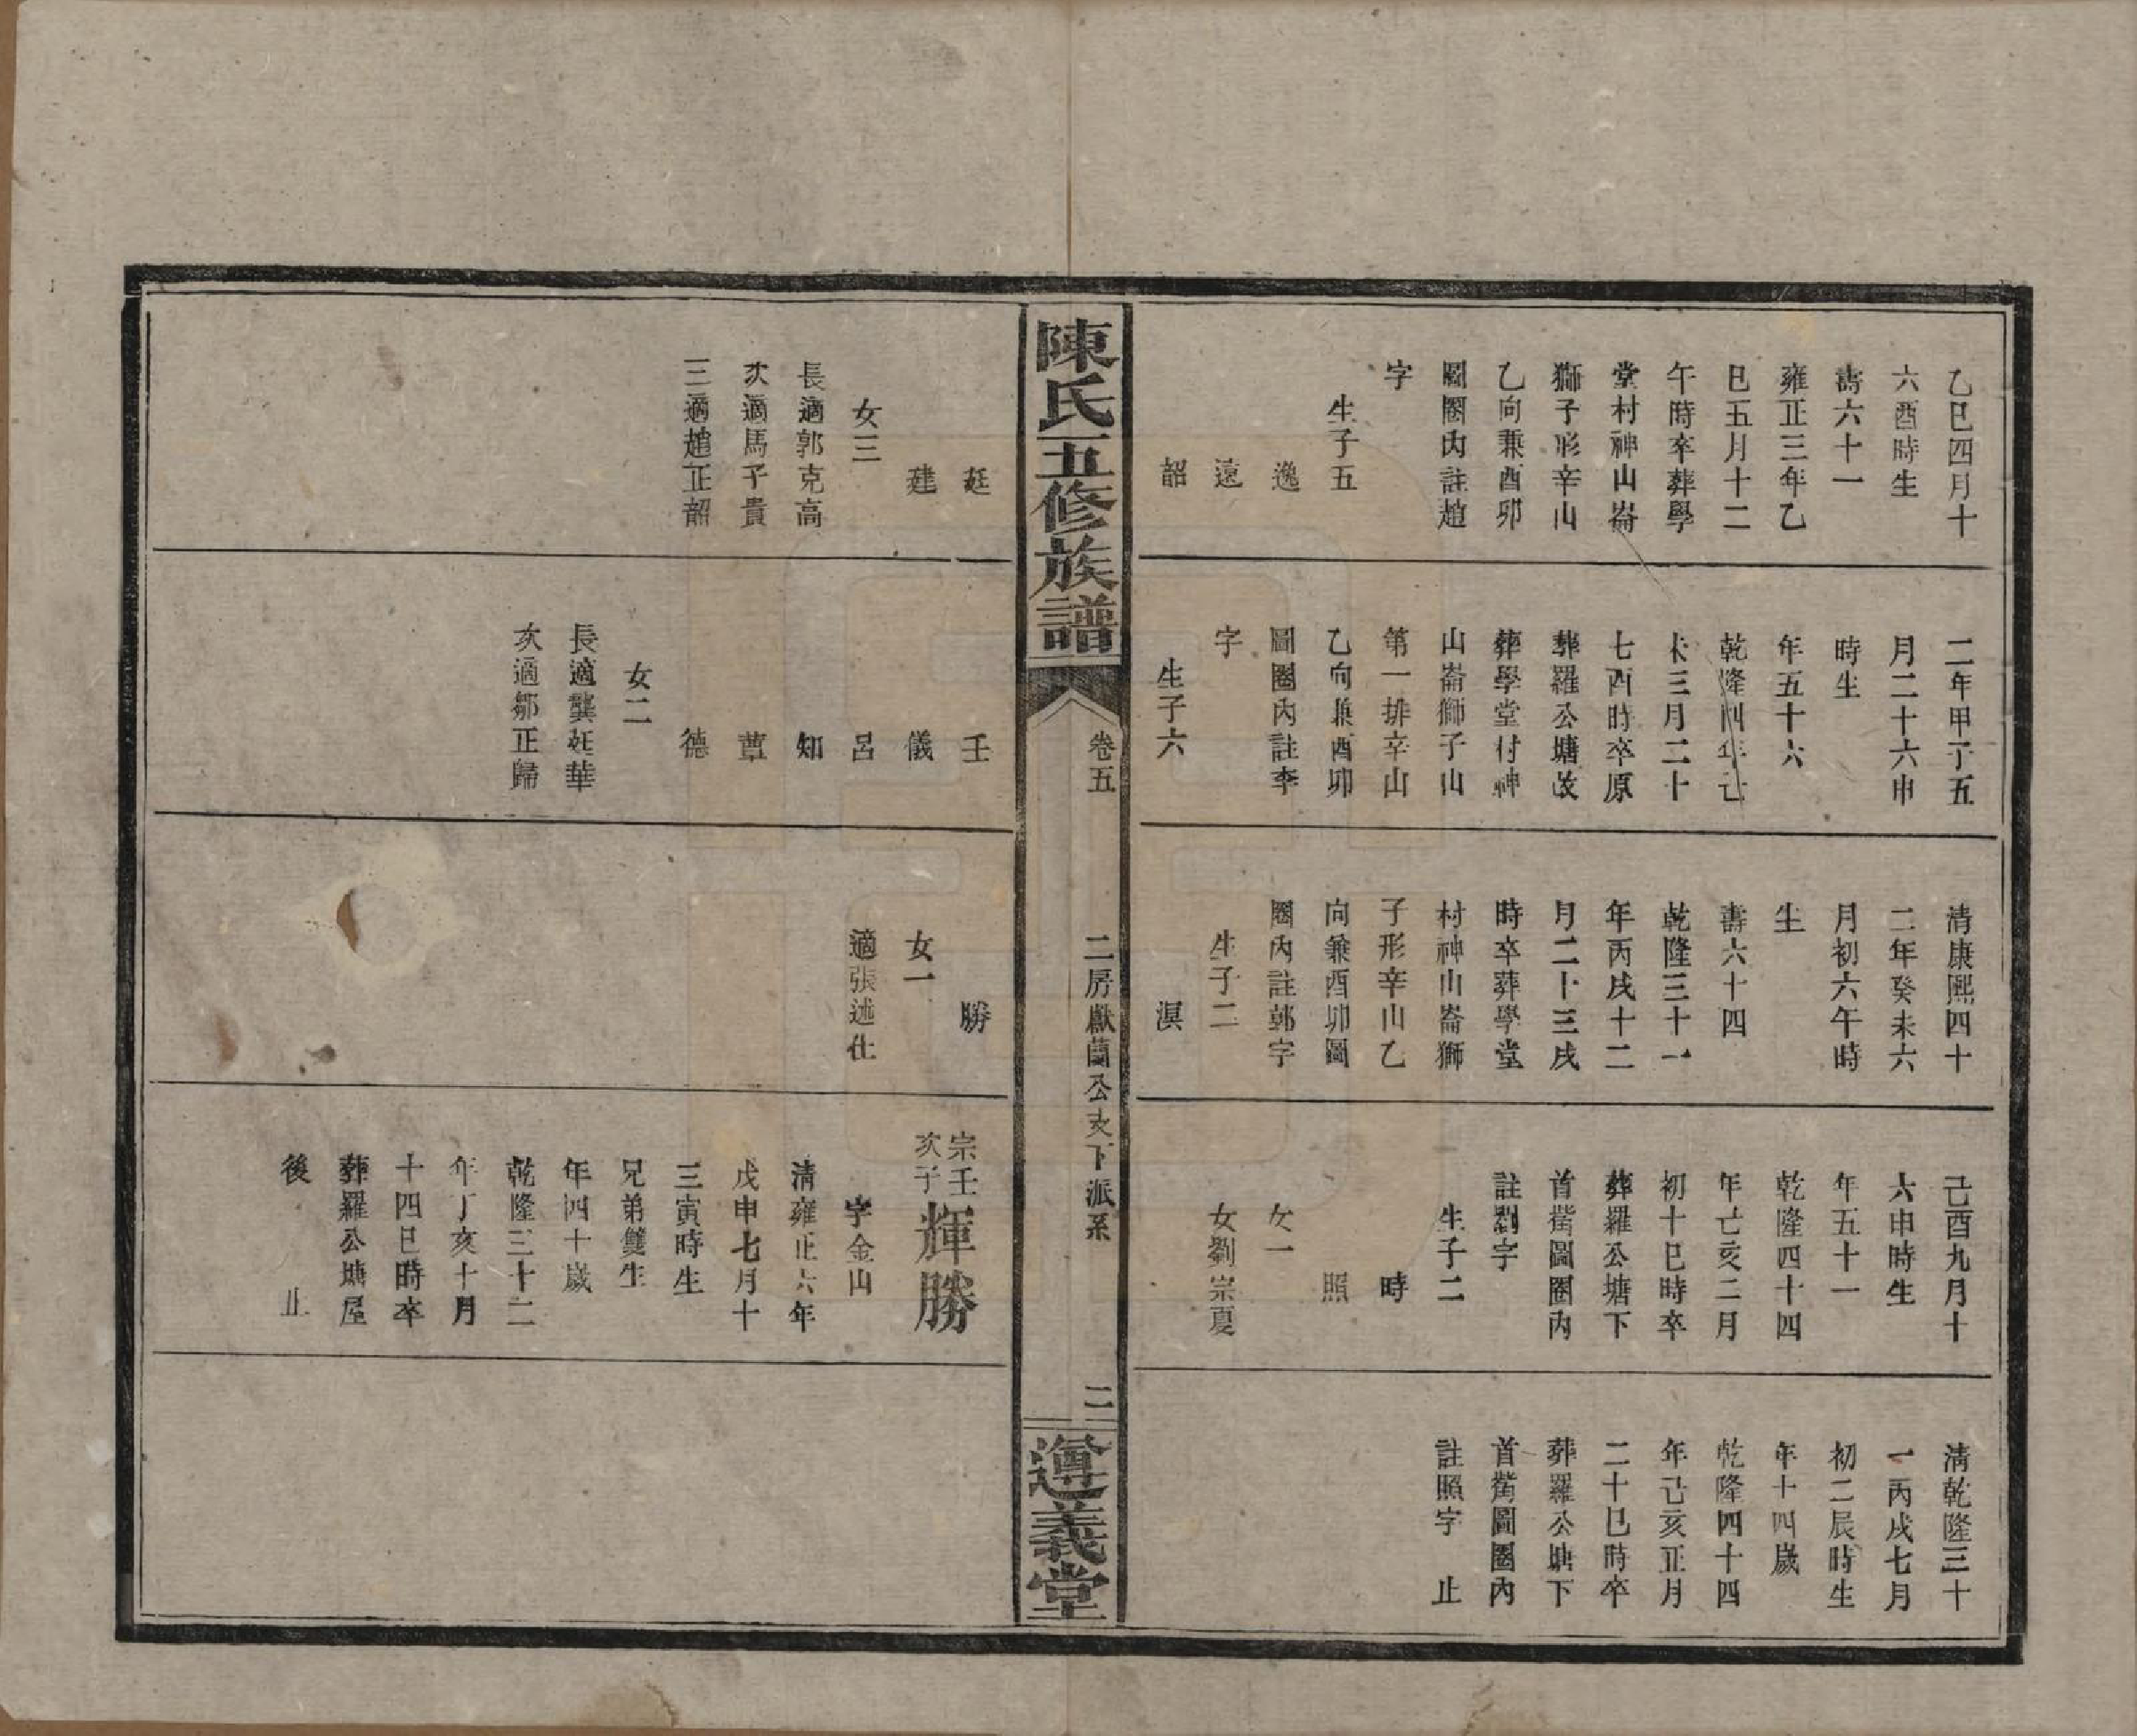 乙巳四月十
六酉時生
壽六十一
雍正三年乙
巳五月十二
午時卒葬學
堂村神山崙
獅子形辛山
乙向兼酉卯
圖圈內註趙
字
生子五
逸
遠
韶
二年甲子五
月二十六申
時生
年五十六
乾隆四年己
未三月二十
七酉時卒原
葬羅公塘改
葬學堂村神
山崙獅子山
第一排辛山
乙向兼酉卯
圖圈內註李
字
生子六
清康熙四十
二年癸未六
月初六午時
生
壽六十四
乾隆三十一
年丙戌十二
月二十三戌
時卒葬學堂
村神山崙獅
子形辛山乙
向兼酉卯圖
圈內註郭字
生子二
淏
己酉九月十
六申時生
年五十一
乾隆四十四
年己亥二月
初十巳時卒
葬羅公塘下
首觜圖圈內
註劉字
生子二
時
照
女一
女劉宗夏
清乾隆三十
一丙戌七月
初二辰時生
年十四歲
乾隆四十四
年己亥正月
二十巳時卒
葬羅公塘下
首觜圖圈內
註照字 止
陳氏五修族譜
卷五
二房獻蘭公支下派系
二
遵義堂
廷
建
女三
長適郭克高
次適馬子貴
三適趙正韶
壬
儀
呂
知
蕈
德
女二
長適龔廷華
次適鄒正歸
勝
女一
適張述仕
宗壬
次子
輝勝
字金山
清雍正六年
戊申七月十
三寅時生
兄弟雙生
年四十歲
乾隆三十二
年丁亥十月
十四巳時卒
葬羅公塘屋
後 止